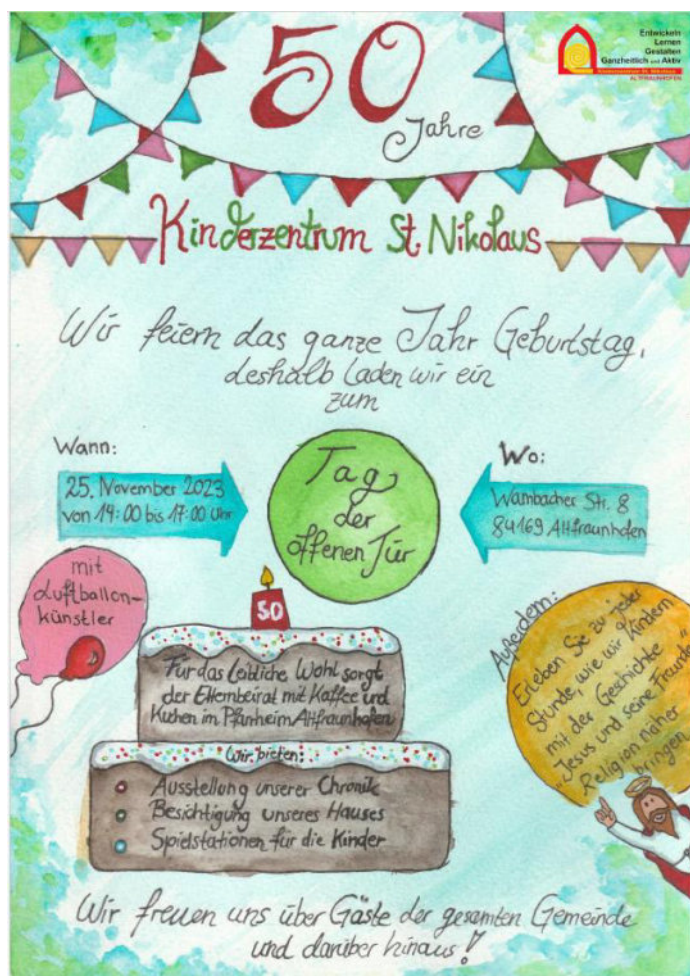 50
Jahre
Entwickeln
Lernen
Gestalten
Ganzheitlich und Aktiv
Kinderzentrum St. Nikolaus
ALTFRAUNHOFEN
Kinderzentrum St. Nikolaus
Wir feiern das ganze Jahr Geburtstag,
deshalb laden wir ein
zum
Wann:
25. November 2023
von 14:00 bis 17:00 Uhr
Tag
der
offenen Tür
Wo:
Wambacher Str. 8
84169 Altfraunhofen
mit
Luftballon-
künstler
50
Für das leibliche Wohl sorgt
der Elternbeirat mit Kaffee und
Kuchen im Pfarrheim Altfraunhofen
Wir bieten:
Ausstellung unserer Chronik
Besichtigung unseres Hauses
Spielstationen für die Kinder
Außerdem:
Erleben Sie zu jeder
Stunde, wie wir Kindern
mit der Geschichte
"Jesus und seine Freunde"
Religion näher
bringen
Wir freuen uns über Gäste der gesamten Gemeinde
und darüber hinaus!